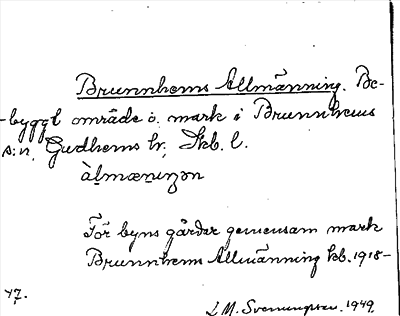 Brunnhems Allmänning. Be-
-byggt område o. mark i Brunnhems
s:n, Gudhems hr, Skb. l.
àlmæniŋən
För byns gårdar gemensam mark
Brunnhems Allmänning kb. 1918-
47.
L.M. Svenungsson. 1949